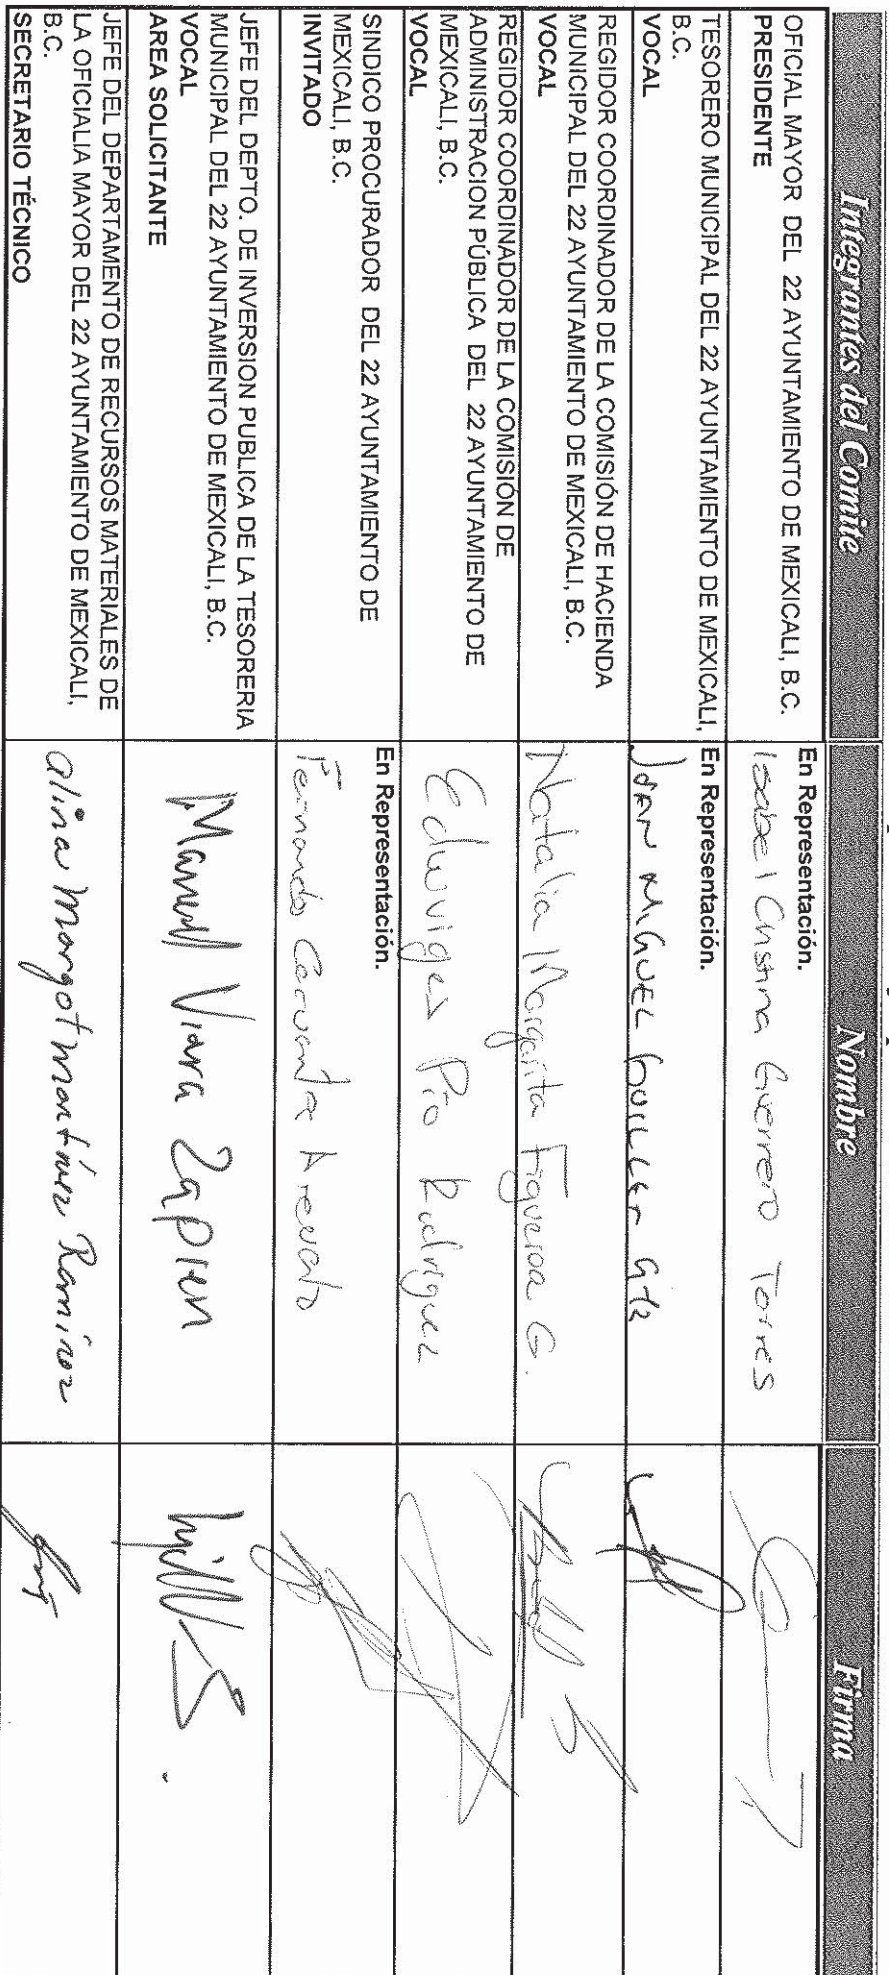 Integrantes del Comite Nombre Firma
OFICIAL MAYOR DEL 22 AYUNTAMIENTO DE MEXICALI, B.C.
PRESIDENTE
En Representación.
Isabel Cristina Guerrero Torres
TESORERO MUNICIPAL DEL 22 AYUNTAMIENTO DE MEXICALI,
B.C.
VOCAL
En Representación.
JUAN MIGUEL GUILLEN GTZ
REGIDOR COORDINADOR DE LA COMISIÓN DE HACIENDA
MUNICIPAL DEL 22 AYUNTAMIENTO DE MEXICALI, B.C.
VOCAL
Natalia Margarita Figueroa G.
REGIDOR COORDINADOR DE LA COMISIÓN DE
ADMINISTRACION PÚBLICA DEL 22 AYUNTAMIENTO DE
MEXICALI, B.C.
VOCAL
Edwviges Pío Rodriguez
SINDICO PROCURADOR DEL 22 AYUNTAMIENTO DE
MEXICALI, B.C.
INVITADO
En Representación.
Fernando Cervantes Arevalo
JEFE DEL DEPTO. DE INVERSION PUBLICA DE LA TESORERIA
MUNICIPAL DEL 22 AYUNTAMIENTO DE MEXICALI, B.C.
VOCAL
AREA SOLICITANTE
Manuel Zapien
JEFE DEL DEPARTAMENTO DE RECURSOS MATERIALES DE
LA OFICIALIA MAYOR DEL 22 AYUNTAMIENTO DE MEXICALI,
B.C.
SECRETARIO TÉCNICO
alina margot martínez Ramírez